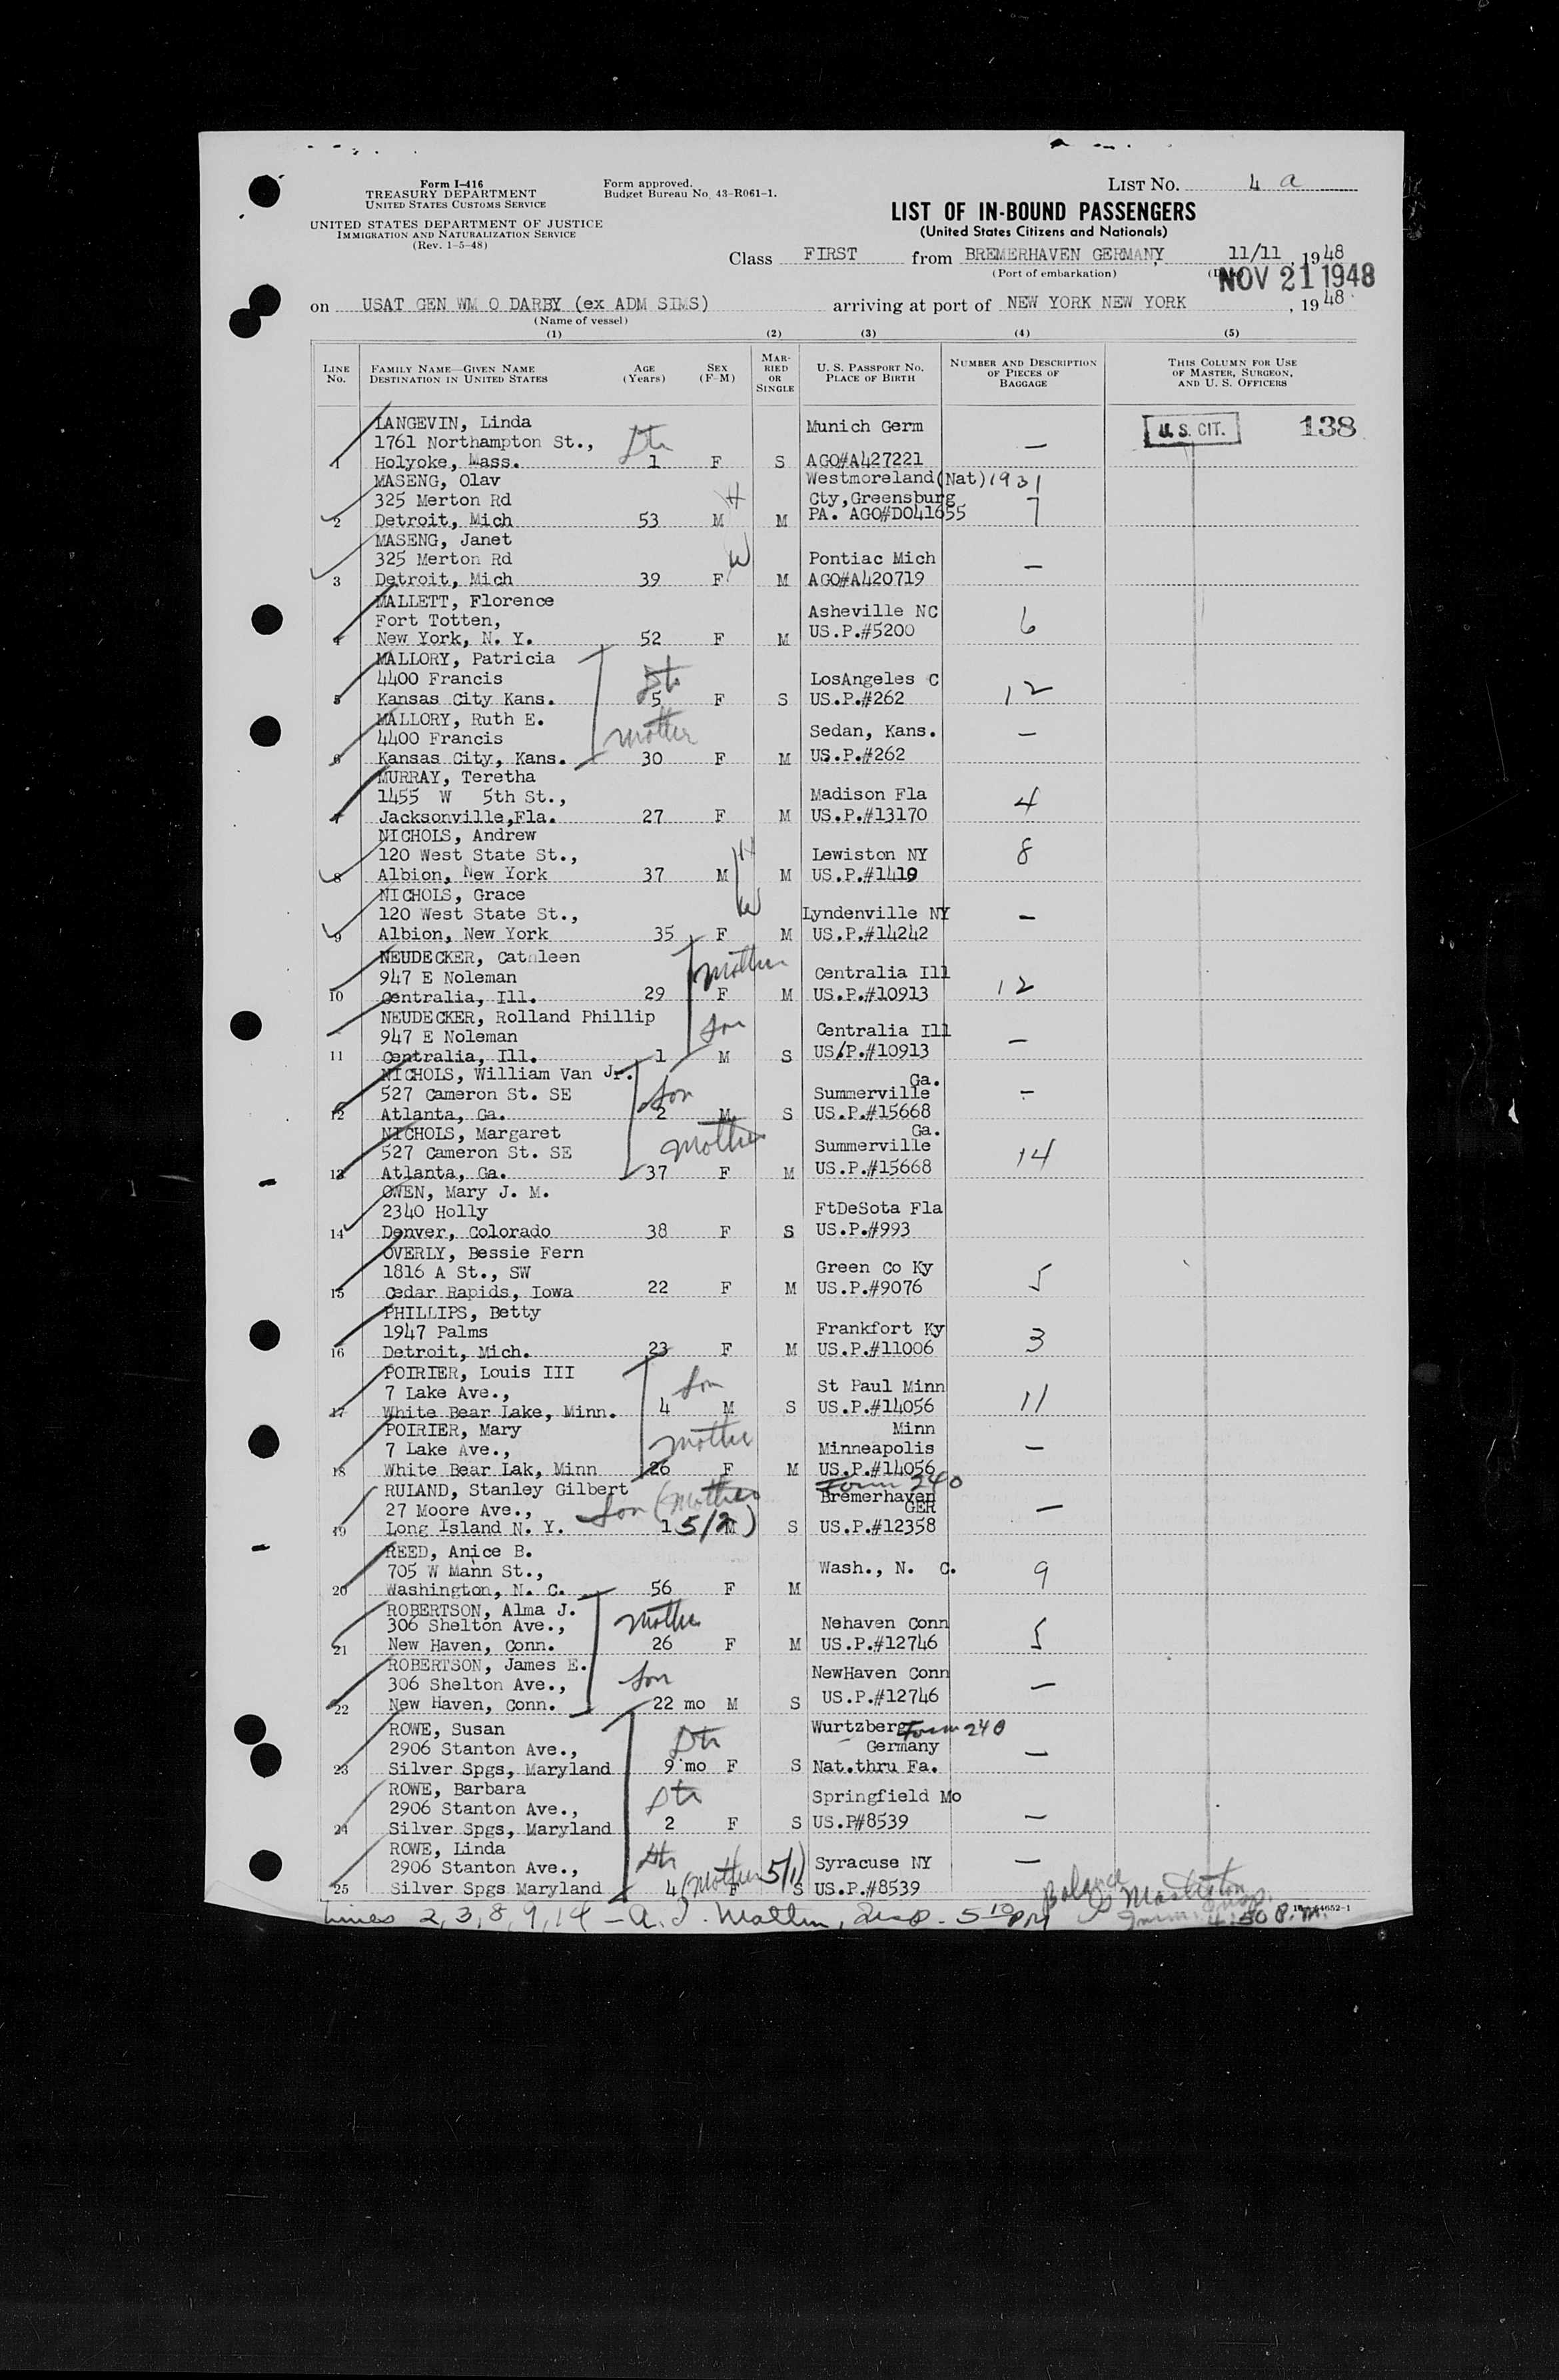 Form I-416
TREASURY DEPARTMENT
UNITED STATES CUSTOMS SERVICE
UNITED STATES DEPARTMENT OF JUSTICE
IMMIGRATION AND NATURALIZATION SERVICE
(Rev. 1-5-48)
Form approved.
Budget Bureau No. 43-R061-1.
LIST NO. 4 a
LIST OF IN-BOUND PASSENGERS
(United States Citizens and Nationals)
Class FIRST from BREMERHAVEN GERMANY, 11/11, 1948
(Port of embarkation)
NOV 21 1948
on USAT GEN WM O DARBY (ex ADM SIMS) arriving at port of NEW YORK NEW YORK, 1948
(Name of vessel)
(1) (2) (3) (4) (5)
LINE No. FAMILY NAME—GIVEN NAME DESTINATION IN UNITED STATES AGE (Years) SEX (F-M) MARRIED OR SINGLE U. S. PASSPORT NO. PLACE OF BIRTH NUMBER AND DESCRIPTION OF PIECES OF BAGGAGE THIS COLUMN FOR USE OF MASTER, SURGEON, AND U. S. OFFICERS
LANGEVIN, Linda Munich Germ U. S. CIT. 138
1761 Northampton St., Dtr —
1 Holyoke, Mass. 1 F S AGO#A427221
MASENG, Olav Westmoreland(Nat)1931
325 Merton Rd H Cty,Greensburg 7
2 Detroit, Mich 53 M M PA. AGO#D041655
MASENG, Janet W
325 Merton Rd Pontiac Mich —
3 Detroit, Mich 39 F M AGO#A420719
MALLETT, Florence
Fort Totten, Asheville NC 6
4 New York, N. Y. 52 F M US.P.#5200
MALLORY, Patricia
4400 Francis Dtr LosAngeles C 12
5 Kansas City Kans. 5 F S US.P.#262
MALLORY, Ruth E. Sedan, Kans. —
4400 Francis mother
6 Kansas City, Kans. 30 F M US.P.#262
MURRAY, Teretha
1455 W 5th St., Madison Fla 4
7 Jacksonville,Fla. 27 F M US.P.#13170
NICHOLS, Andrew H
120 West State St., Lewiston NY 8
8 Albion, New York 37 M M US.P.#1419
NICHOLS, Grace W
120 West State St., Lyndenville NY —
9 Albion, New York 35 F M US.P.#14242
NEUDECKER, Cathleen mother
947 E Noleman Centralia Ill 12
10 Centralia, Ill. 29 F M US.P.#10913
NEUDECKER, Rolland Phillip son
947 E Noleman Centralia Ill —
11 Centralia, Ill. 1 M S US/P.#10913
NICHOLS, William Van Jr. Ga.
527 Cameron St. SE son Summerville —
12 Atlanta, Ga. 2 M S US.P.#15668
NICHOLS, Margaret Ga.
527 Cameron St. SE Mother Summerville 14
13 Atlanta, Ga. 37 F M US.P.#15668
OWEN, Mary J. M.
2340 Holly FtDeSota Fla
14 Denver, Colorado 38 F S US.P.#993
OVERLY, Bessie Fern
1816 A St., SW Green Co Ky 5
15 Cedar Rapids, Iowa 22 F M US.P.#9076
PHILLIPS, Betty
1947 Palms Frankfort Ky 3
16 Detroit, Mich. 23 F M US.P.#11006
POIRIER, Louis III son
7 Lake Ave., St Paul Minn 11
17 White Bear Lake, Minn. 4 M S US.P.#14056
POIRIER, Mary Minn
7 Lake Ave., mother Minneapolis —
18 White Bear Lak, Minn 26 F M US.P.#14056
RULAND, Stanley Gilbert Form 240
27 Moore Ave., Son (Mother Bremerhaven GER —
19 Long Island N. Y. 1 5/2) M S US.P.#12358
REED, Anice B.
705 W Mann St., Wash., N. C. 9
20 Washington, N. C. 56 F M
ROBERTSON, Alma J. mother
306 Shelton Ave., Nehaven Conn 5
21 New Haven, Conn. 26 F M US.P.#12746
ROBERTSON, James E. son NewHaven Conn
306 Shelton Ave., —
22 New Haven, Conn. 22 mo M S US.P.#12746
ROWE, Susan Dtr Wurtzberg Form 240
2906 Stanton Ave., Germany —
23 Silver Spgs, Maryland 9 mo F S Nat.thru Fa.
ROWE, Barbara Dtr Springfield Mo
2906 Stanton Ave., —
24 Silver Spgs, Maryland 2 F S US.P#8539
ROWE, Linda Dtr
2906 Stanton Ave., (Mother 5/1) Syracuse NY —
25 Silver Spgs Maryland 4 F S US.P.#8539
Lines 2, 3, 8, 9, 14 — Insp. 5 10 PM Balance
Imm. Insp.
4:50 P.M.